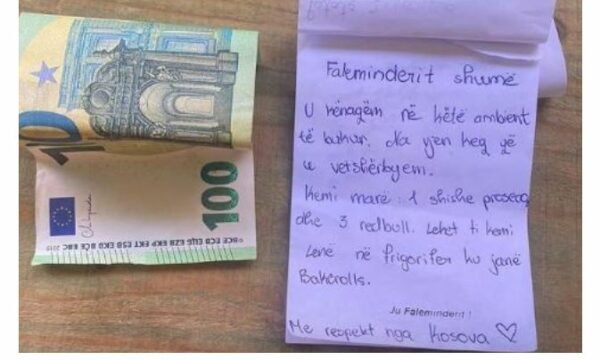 100
100
2019
©BCE ECB ЕЦБ EZB EKP EKT ESB EKB BĊE EBC
Faleminderit shumë
U kënaqëm në këtë ambient
të bukur. Na vjen keq që
u vetshërbyem.
Kemi marë: 1 shishe prosecco
dhe 3 redbull. Lehet ti kemi
lenë në frigorifer ku janë
Bakerolls.
Ju Faleminderit !
Me respekt nga Kosova ♡